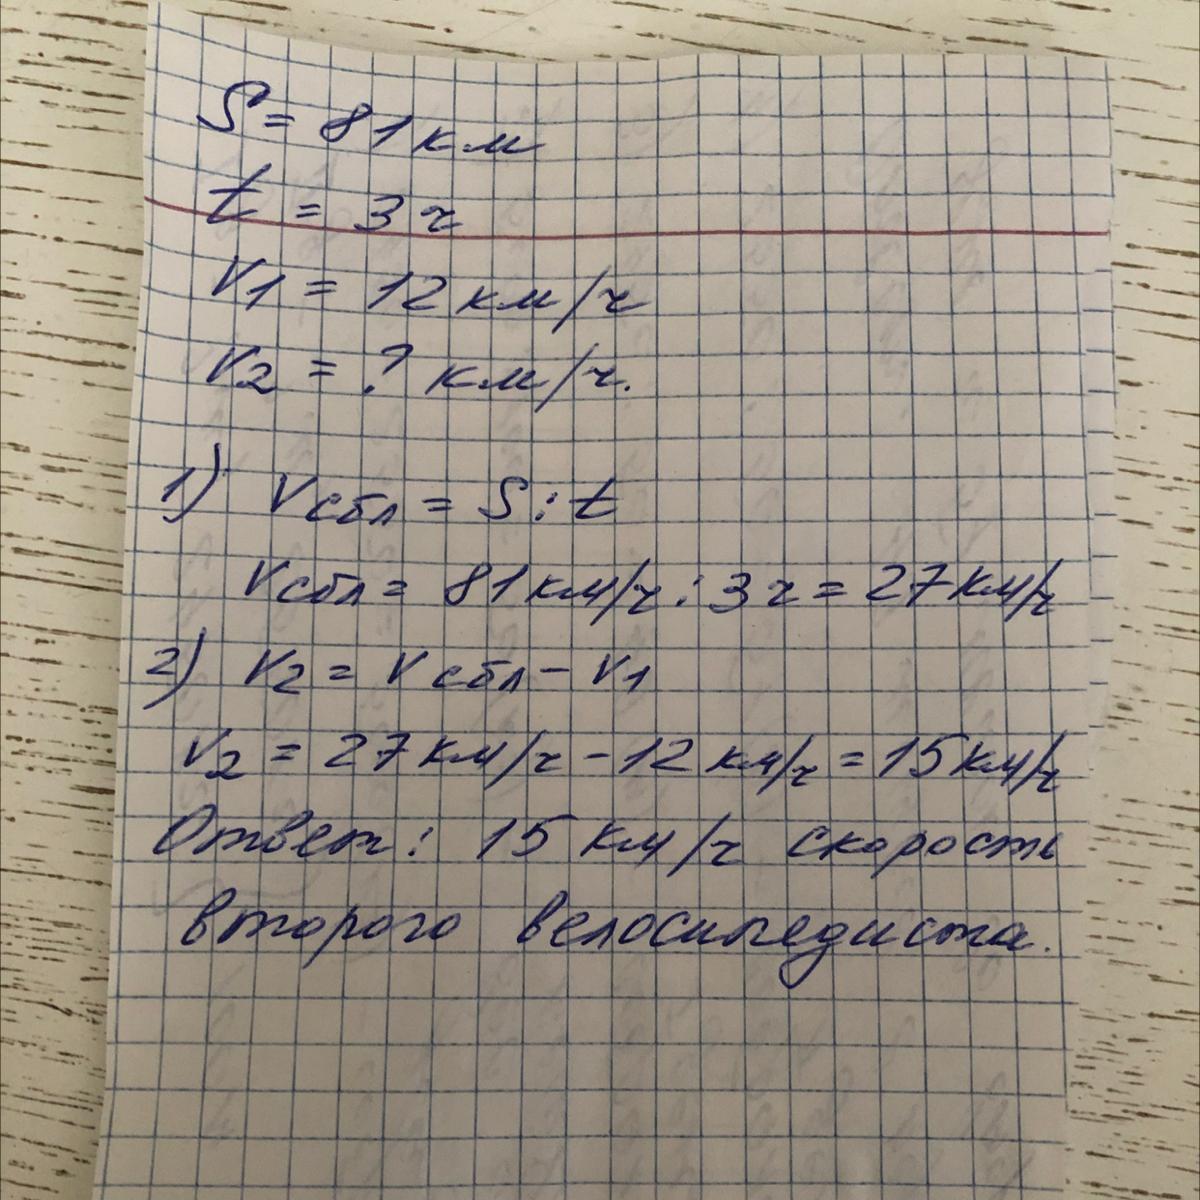 S = 81 км
t = 3 ч
V1 = 12 км/ч
V2 = ? км/ч.
1) Vсбл = S : t
Vсбл = 81 км/ч : 3 ч = 27 км/ч
2) V2 = Vсбл - V1
V2 = 27 км/ч - 12 км/ч = 15 км/ч
Ответ: 15 км/ч скорость
второго велосипедиста.